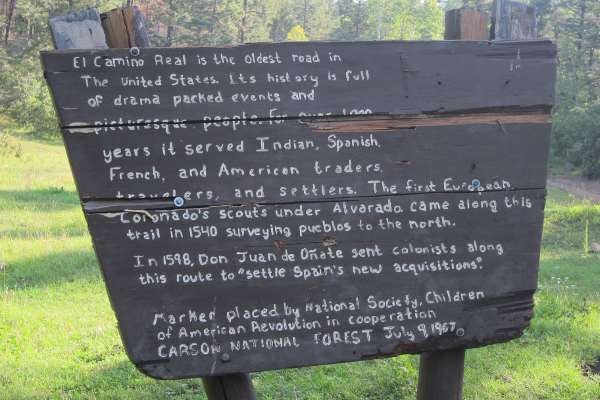 El Camino Real is the oldest road in
The United States. Its history is full
of drama packed events and
picturesque people. For over 1000
years it served Indian, Spanish,
French, and American traders,
travelers, and settlers. The first European,
Coronado's scouts under Alvarado came along this
trail in 1540 surveying pueblos to the north.
In 1598, Don Juan de Oñate sent colonists along
this route to "settle Spain's new acquisitions".
Marker placed by National Society, Children
of American Revolution in cooperation
CARSON NATIONAL FOREST July 9, 1967